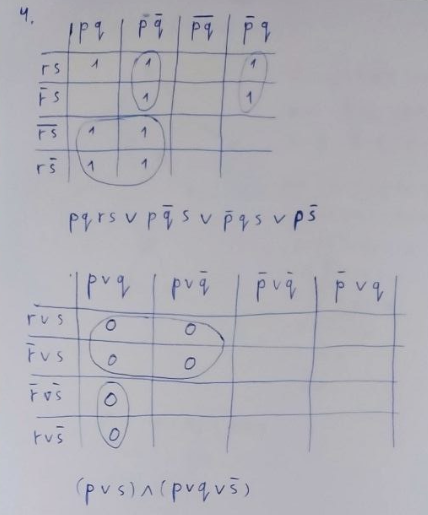 4.
pq p̄q̄ p̅q̅ p̄q
rs 1 1 1
r̄s 1 1
r̅s̅ 1 1
rs̄ 1 1
pqrs ∨ pq̄s ∨ p̄qs ∨ ps̄
p∨q p∨q̄ p̄∨q̄ p̄∨q
r∨s 0 0
r̄∨s 0 0
r̄∨s̄ 0
r∨s̄ 0
(p∨s)∧(p∨q∨s̄)